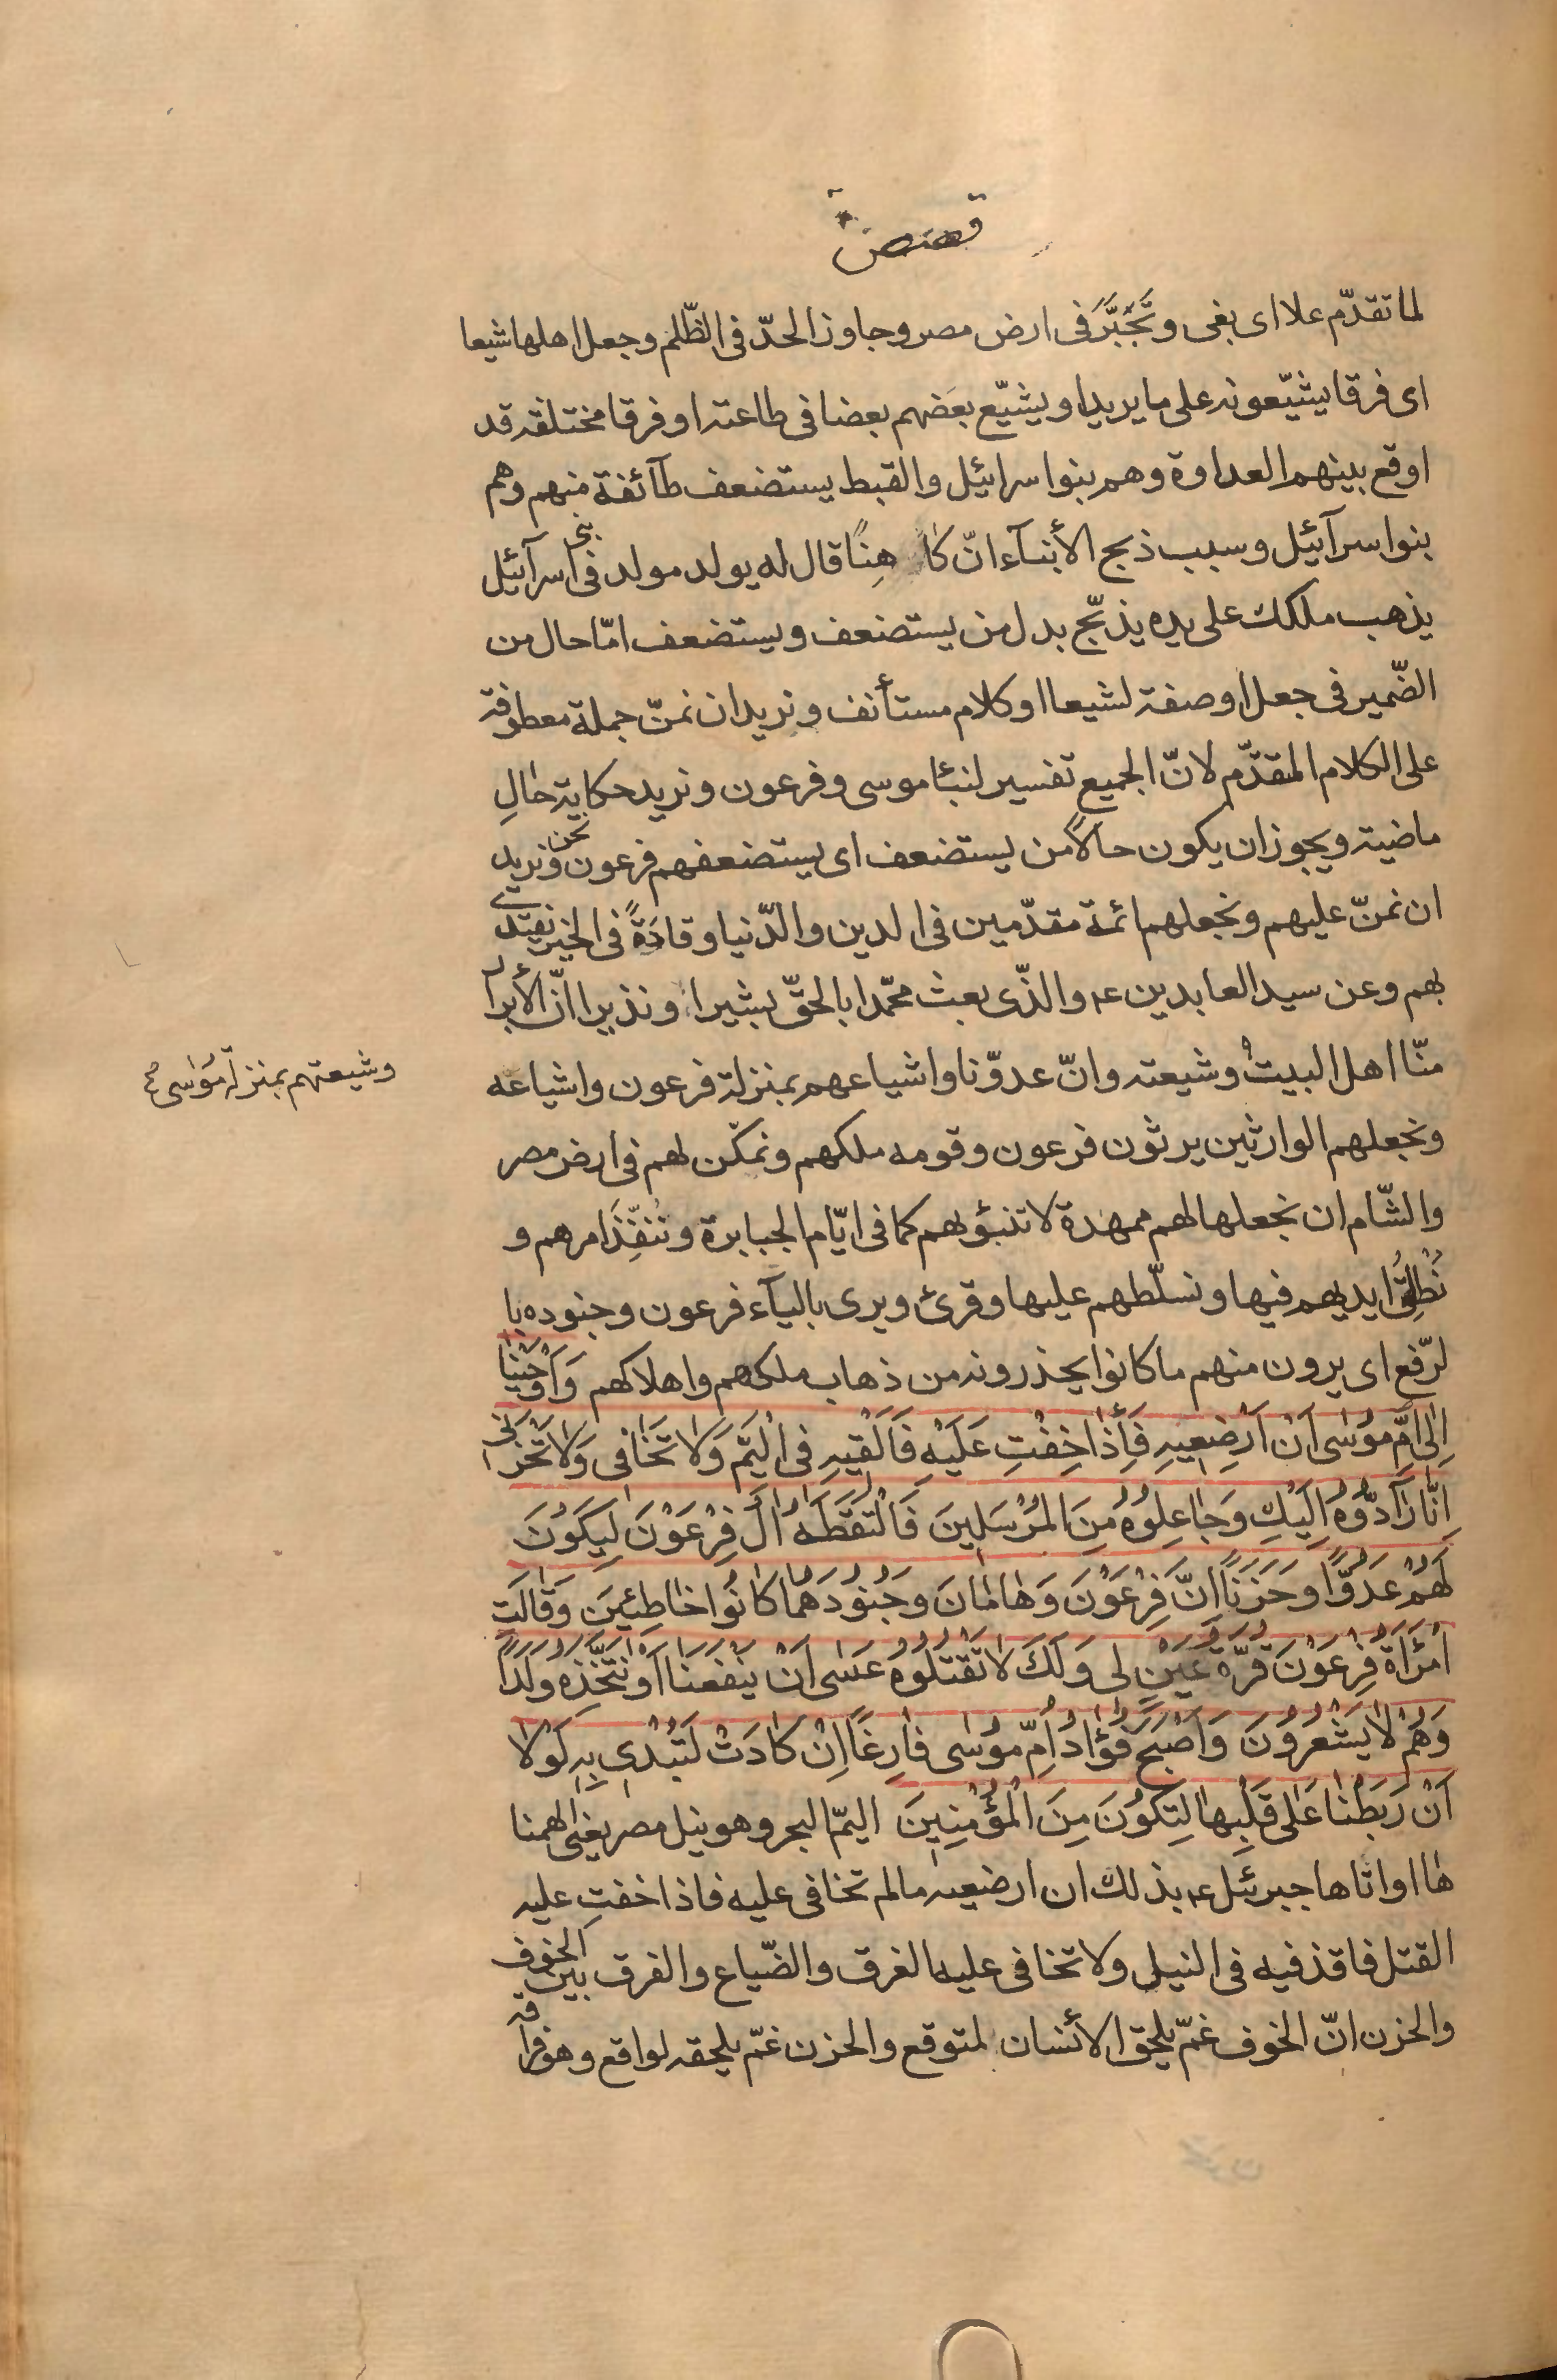 قصص
لما تقدّم علا اى بغى وتَجَبَّرَ فى ارض مصر وجاوز الحدّ فى الظّلم وجعل اهلها شيعا
اى فرقا يشيّعونه على ما يريد او يشيّع بعضهم بعضا فى طاعته او فرقا مختلفة قد
اوقع بينهم العداوة وهم بنوا سرائيل والقبط يستضعف طآئفة منهم وهم
بنوا سرآئيل وسبب ذبح الأبنآء انّ كاهِنًا قال له يولد مولد فى بنى اسرآئيل
يذهب ملكك على يده يذبّح بدل من يستضعف ويستضعف امّا حال من
الضّمير فى جعل او صفة لشيعا او كلام مستأنف ونريد ان نمنّ جملة معطوفة
على الكلام المقدّم لانّ الجميع تفسير لنبئا موسى وفرعون ونريد حكاية حالِ
ماضية ويجوز ان يكون حالاً من يستضعف اى يستضعفهم فرعون ونحن نريد
ان نمنّ عليهم ونجعلهم ائمة مقدّمين فى الدين والدّنيا وقادَةً فى الخير يقتدى
بهم وعن سيد العابدين ع والذّى بعث محمّدا بالحقّ بشيرا ونذيرا انّ الأبرار
منّا اهل البيت وشيعته وانّ عدوّنا واشياعهم بمنزلة فرعون واشياعه
وشيعتهم بمنزلة موسى ع
ونجعلهم الوارثين يرثون فرعون وقومه ملكهم ونمكّن لهم فى ارض مصر
والشّام ان نجعلها لهم ممهدة لا تنبؤ بهم كما فى ايّام الجبابرة وننفِّذَ امرهم و
نُطْلِقُ ايديهم فيها ونسلّطهم عليها وقرئ ويرى باليآء فرعون وجنوده با
لرّفع اى يرون منهم ما كانوا يحذرونه من ذهاب ملكهم واهلاكهم وَاَوْحَيْنا
اِلىٰ اُمِّ مُوسٰى اَنْ اَرْضِعِيهِ فَاِذٰا خِفْتِ عَلَيْهِ فَاَلْقِيهِ فِى الْيَمِّ وَلا تَخٰافى وَلا تَحْزَنى
اِنّٰا رٰآدُّوهُ اِلَيْكِ وَجٰاعِلُوهُ مِنَ المُرْسَلِينَ فَالْتَقَطَهُ اٰلُ فِرْعَوْنَ لِيَكُونَ
لَهُمْ عَدُوًّا وَحَزَنًا اِنَّ فِرْعَوْنَ وَهٰامٰانَ وَجُنُودَهُمٰا كٰانُوا خٰاطِئِينَ وَقٰالَتِ
امْرَاَةُ فِرْعَوْنَ قُرَّةُ عَيْنٍ لى وَلَكَ لاٰ تَقْتُلُوهُ عَسٰى اَنْ يَنْفَعَنٰا اَوْ نَتَّخِذَهُ وَلَدًا
وَهُمْ لاٰ يَشْعُرُونَ وَاَصْبَحَ فُؤٰادُ اُمِّ مُوسٰى فٰارِغًا اِنْ كٰادَتْ لَتُبْدى بِهِ لَوْلاٰ
اَنْ رَبَطْنٰا عَلىٰ قَلْبِهٰا لِتَكُونَ مِنَ الْمُؤْمِنِينَ اليمّ البحر وهو نيل مصر يعنى الهمنا
ها او اتاها جبرئيل ع بذلك ان ارضعيه ما لم تخافى عليه فاذا خفتِ عليه
القتل فاقذفيه فى النيل ولا تخافى عليه الغرق والضّياع والفرق بين الخوف
والحزن انّ الخوف غمّ يلحق الأنسان لمتوقع والحزن غمّ يلحقه لواقع وهو فراقه